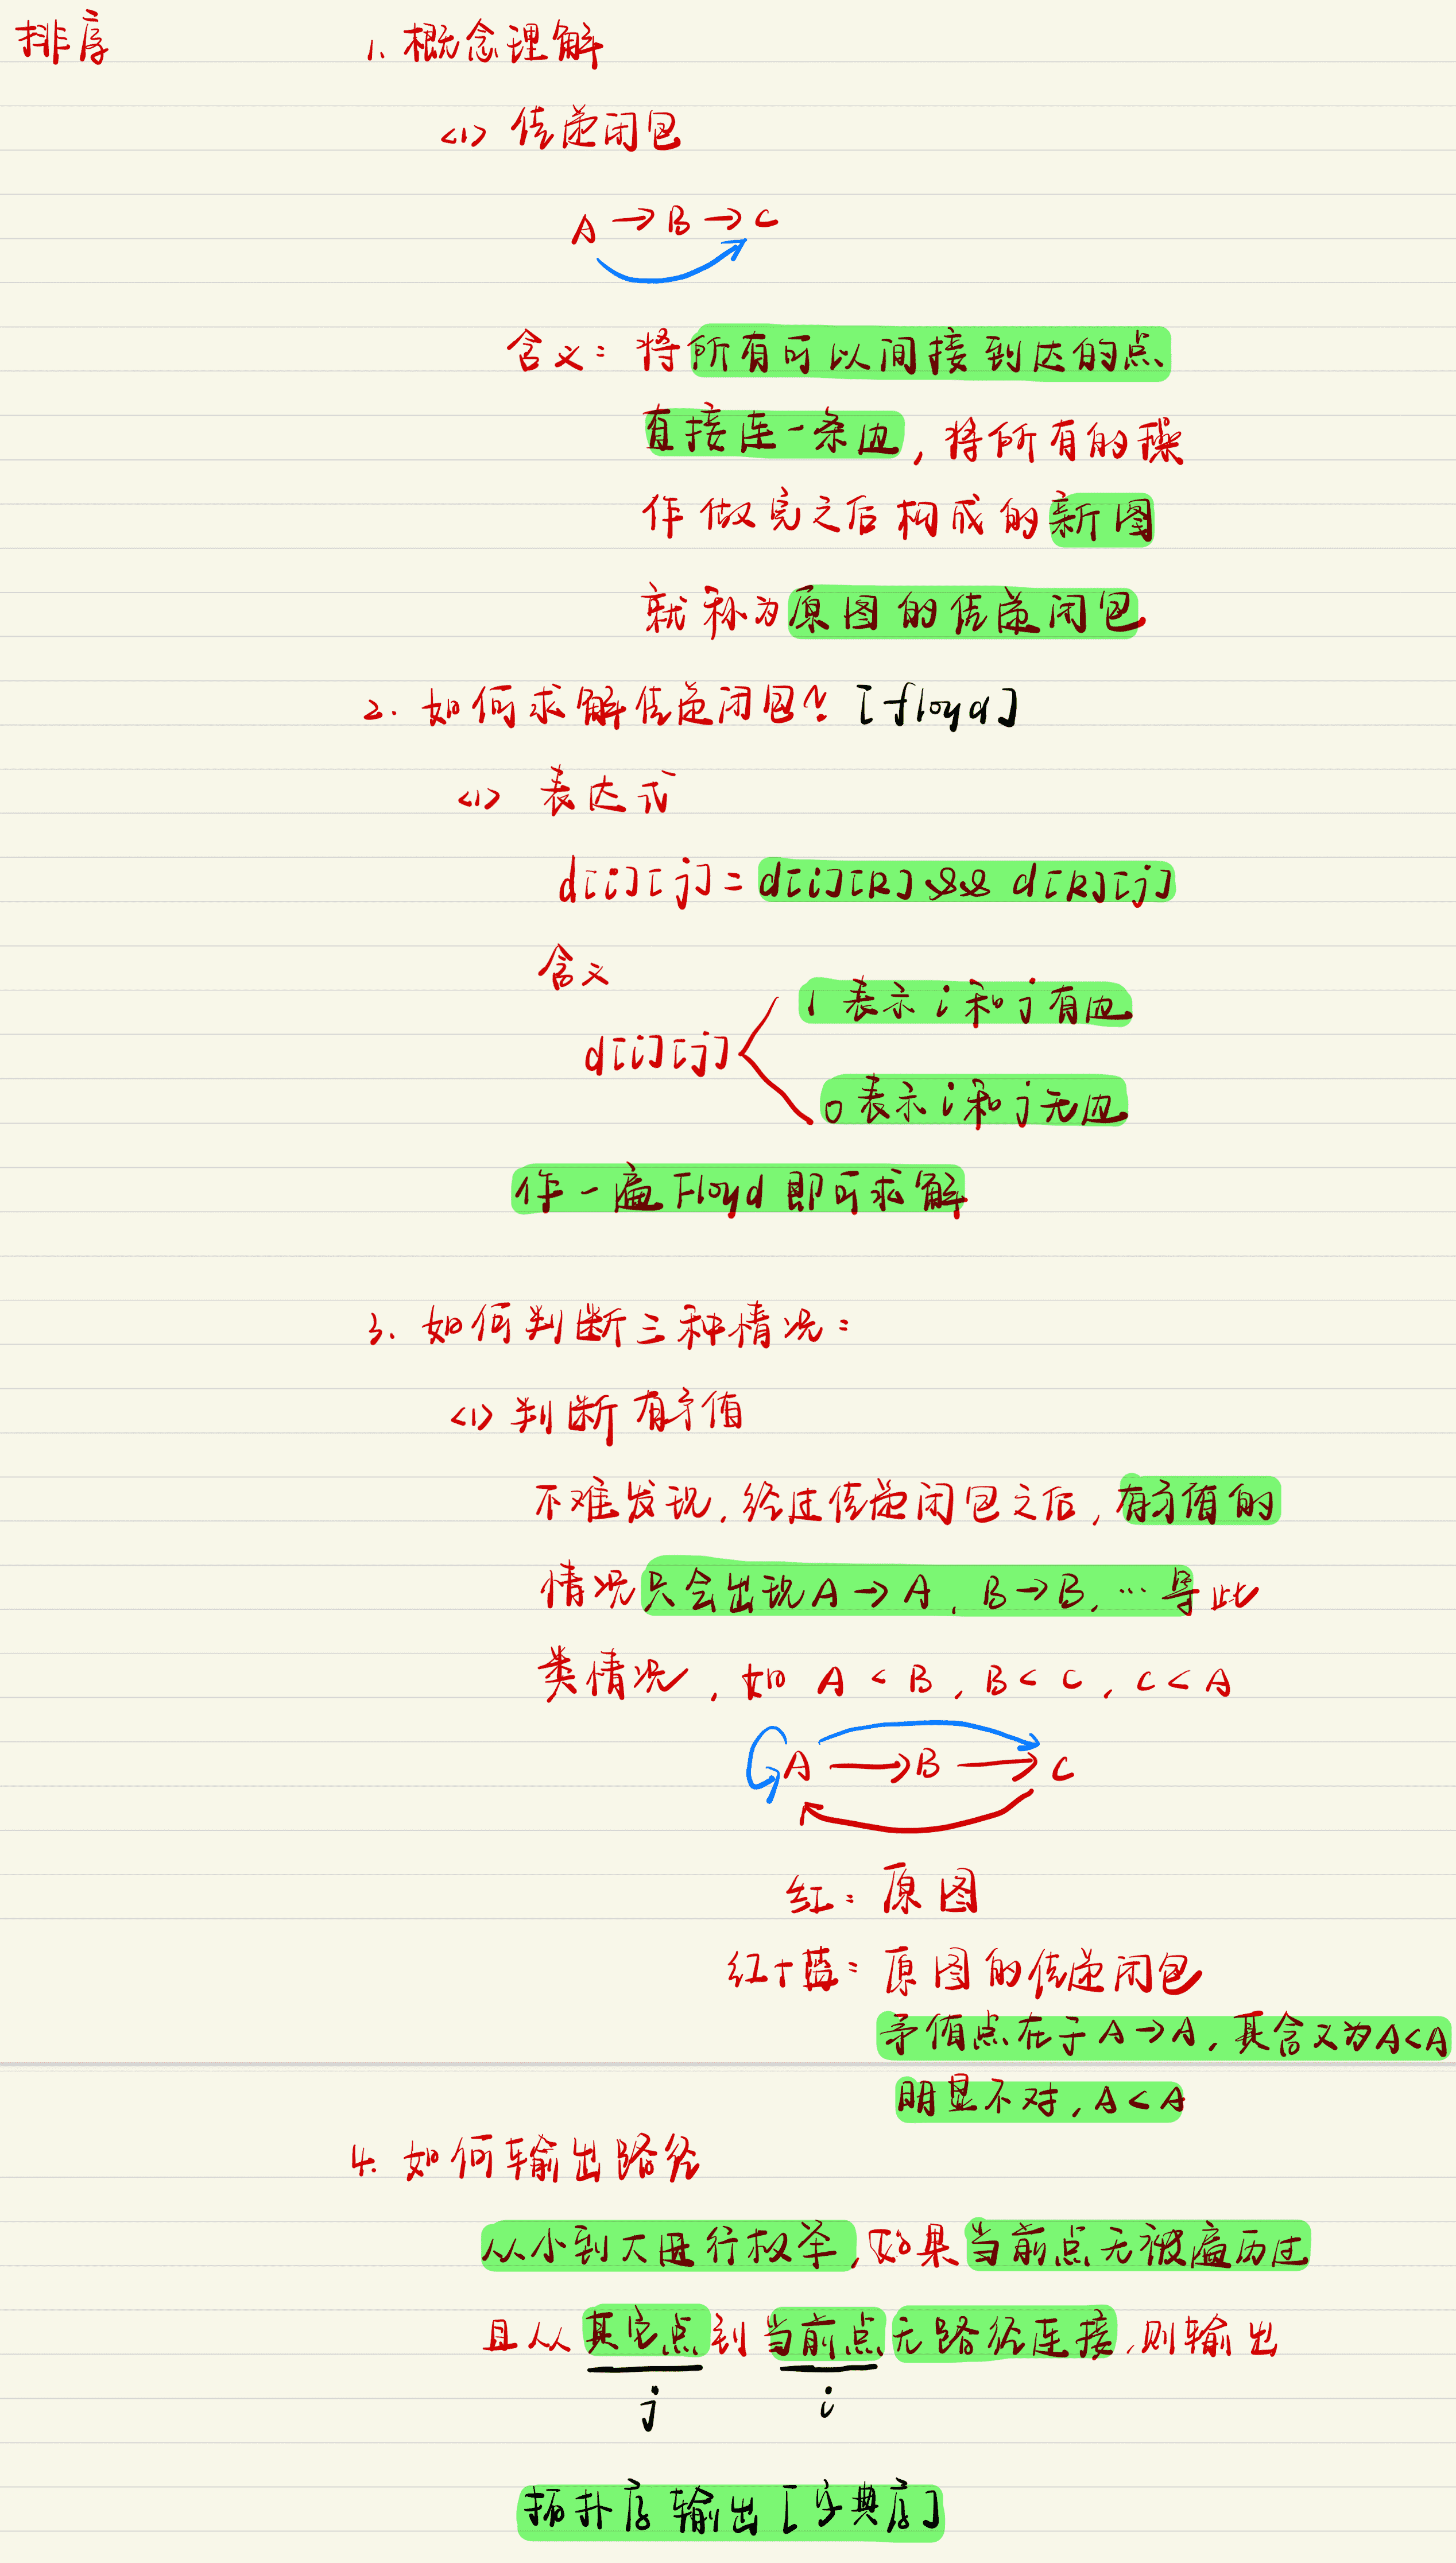 排序
1. 概念理解
<1> 传递闭包
A → B → C
含义：将所有可以间接到达的点
直接连一条边，将所有的操
作做完之后构成的新图
就称为原图的传递闭包
2. 如何求解传递闭包？[floyd]
<1> 表达式
d[i][j] = d[i][k] && d[k][j]
含义
1 表示 i 和 j 有边
d[i][j]
0 表示 i 和 j 无边
作一遍 Floyd 即可求解
3. 如何判断三种情况：
<1> 判断有矛盾
不难发现，经过传递闭包之后，有矛盾的
情况只会出现 A → A，B → B，… 等此
类情况，如 A < B，B < C，C < A
A → B → C
红：原图
红+蓝：原图的传递闭包
矛盾点在于 A → A，其含义为 A < A
明显不对，A < A
4. 如何输出路径
从小到大进行枚举，如果当前点无被遍历过
且从其它点到当前点无路径连接，则输出
j i
拓扑序输出 [字典序]